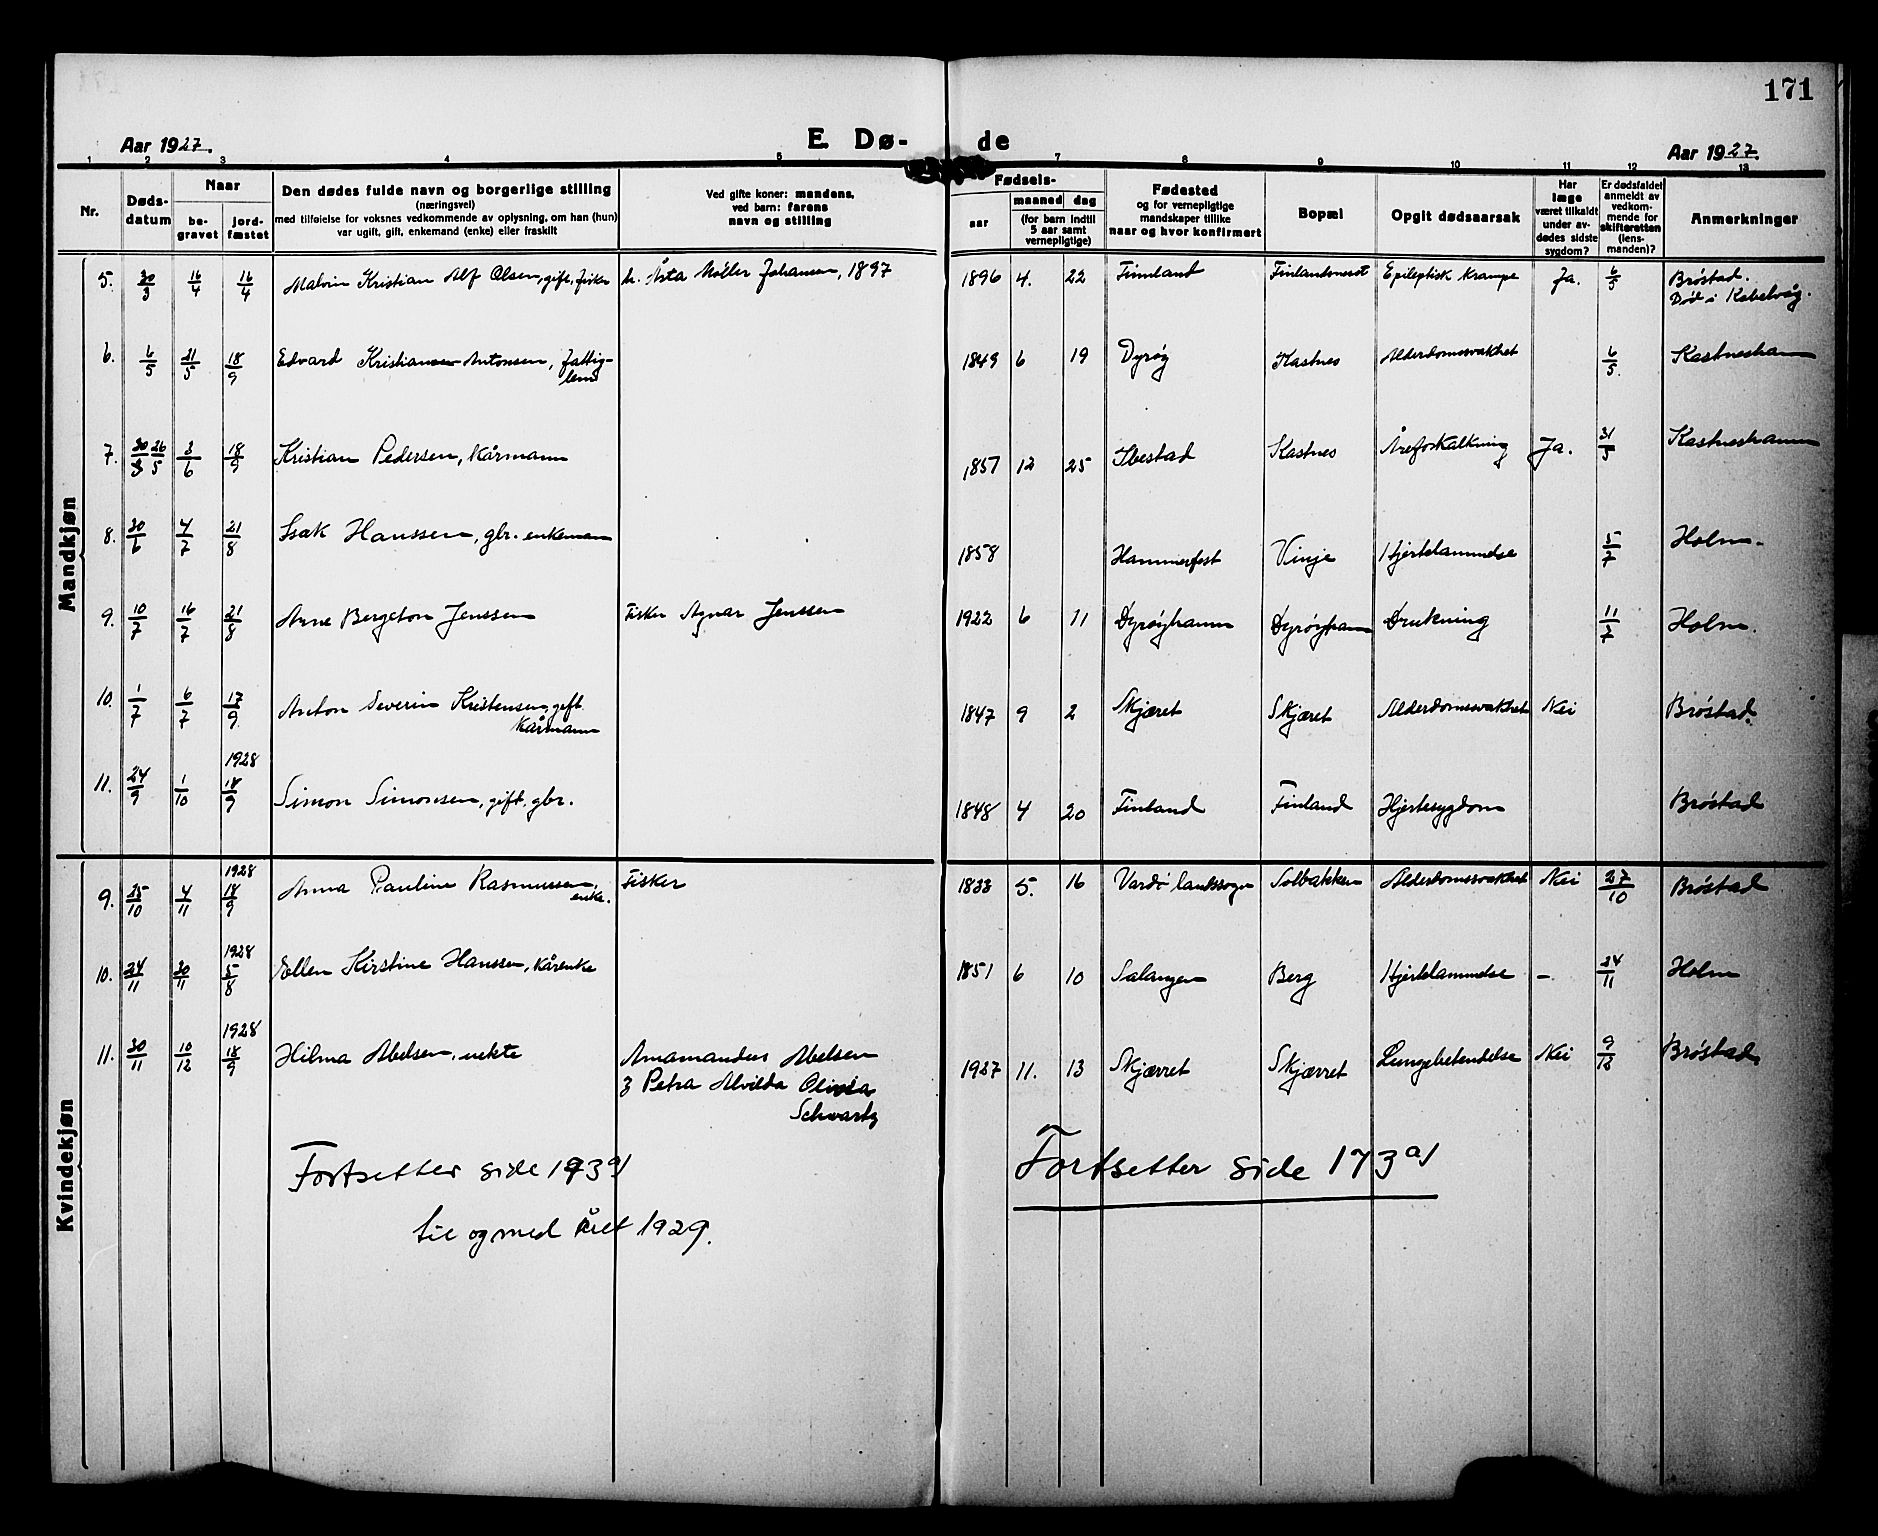 171
Aar 1927.
E. Dø-
de
Aar 1927.
1 2 3 4 5 7 8 9 10 11 12 13
Nr.
Døds-
datum
Naar
be-
gravet
jord-
fæstet
Den dødes fulde navn og borgerlige stilling
(næringsvei)
med tilføielse for voksnes vedkommende av oplysning, om han (hun)
var ugift, gift, enkemand (enke) eller fraskilt
Ved gifte koner: mandens,
ved barn: farens
navn og stilling
Fødsels-
aar
maaned dag
(for barn indtil
5 aar samt
vernepligtige)
Fødested
og for vernepligtige
mandskaper tillike
naar og hvor konfirmert
Bopæl
Opgit dødsaarsak
Har
læge
været tilkaldt
under av-
dødes sidste
sygdom?
Er dødsfaldet
anmeldt av
vedkom-
mende for
skifteretten
(lens-
manden)?
Anmerkninger
Mandkjøn
5. 30/3 16/4 16/4 Malvin Kristian Alf Olsen, gift, fisker h. Åsta Møller Johansen, 1897 1896 4. 22 Finnland Epileptisk krampe Ja. 6/5 Brøstad.
Død i Kabelvåg.
6. 6/5 21/5 18/9 Edvard Kristiansen Antonsen, fattig-
lem
1849 6 19 Dyrøy Kastnes Alderdomssvakhet 6/5. Kastneshamn
7. 26/5 3/6 18/9 Kristian Pedersen, Kårmann 1857 12 25 Ibestad Kastnes Åreforkalkning Ja. 31/5 Kastneshamn
8. 30/6 4/7 21/8 Isak Hanssen, gbr. enkeman 1858 Hammerfest Vinje Hjertelammelse 5/7 Holm.
9. 10/7 16/7 21/8 Arne Bergeton Jenssen Fisker Agnar Jenssen 1922 6 11 Dyrøyhamn Dyrøyhamn Drukning 11/7 Holm.
10. 1/7 6/7 17/9 Anton Severin Kristensen, gift.
Kårmann
1847 9 2 Skjæret Skjæret Alderdomssvakhet Nei Brøstad.
1928
11. 24/9 1/10 18/9 Simon Simonsen, gift, gbr. 1848 4 20 Finland Finland Hjertesygdom Brøstad
Kvindekjøn
1928
9. 25/10 4/11 18/9 Anna Pauline Rasmussen,
enke.
Fisker 1833 5. 16 Vardø landssogn Solbakken Alderdomssvakhet Nei 27/10 Brøstad
1928
10. 24/11 30/11 5/8 Ellen Kirstine Hanssen, kårenke 1851 6 10 Salangen Berg Hjertelammelse – 24/11 Holm
1928
11. 30/11 10/12 18/9 Hilma Abelsen, uekte Amamandus Abelsen
3 Petra Alvilda Olivia
Schwartz
1927 11. 13 Skjærret Skjærret Lungebetendelse Nei 9/12 Brøstad
Fortsetter side 173 a/
til og med året 1929.
Fortsetter side 173 a/